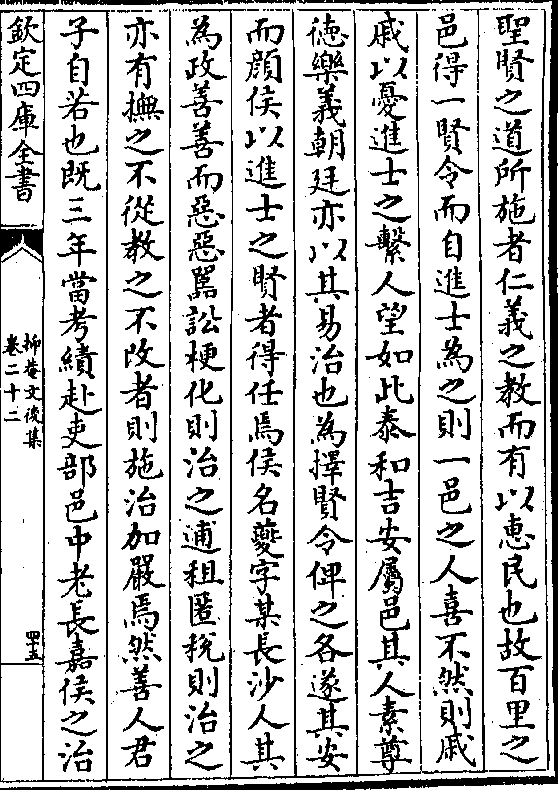 聖賢之道所施者仁義之教而有以惠民也故百里之
邑得一賢令而自進士為之則一邑之人喜不然則戚
戚以憂進士之繫人望如此泰和吉安屬邑其人素尊
徳樂義朝廷亦以其易治也為擇賢令俾之各遂其安
而顔侯以進士之賢者得任焉侯名夔字某長沙人其
為政善善而惡惡嚚訟梗化則治之逋租匿稅則治之
亦有撫之不從教之不改者則施治加嚴焉然善人君
子自若也既三年當考績赴吏部邑中老長嘉侯之治
欽定四庫全書
抑菴文後集
卷二十二
四十五